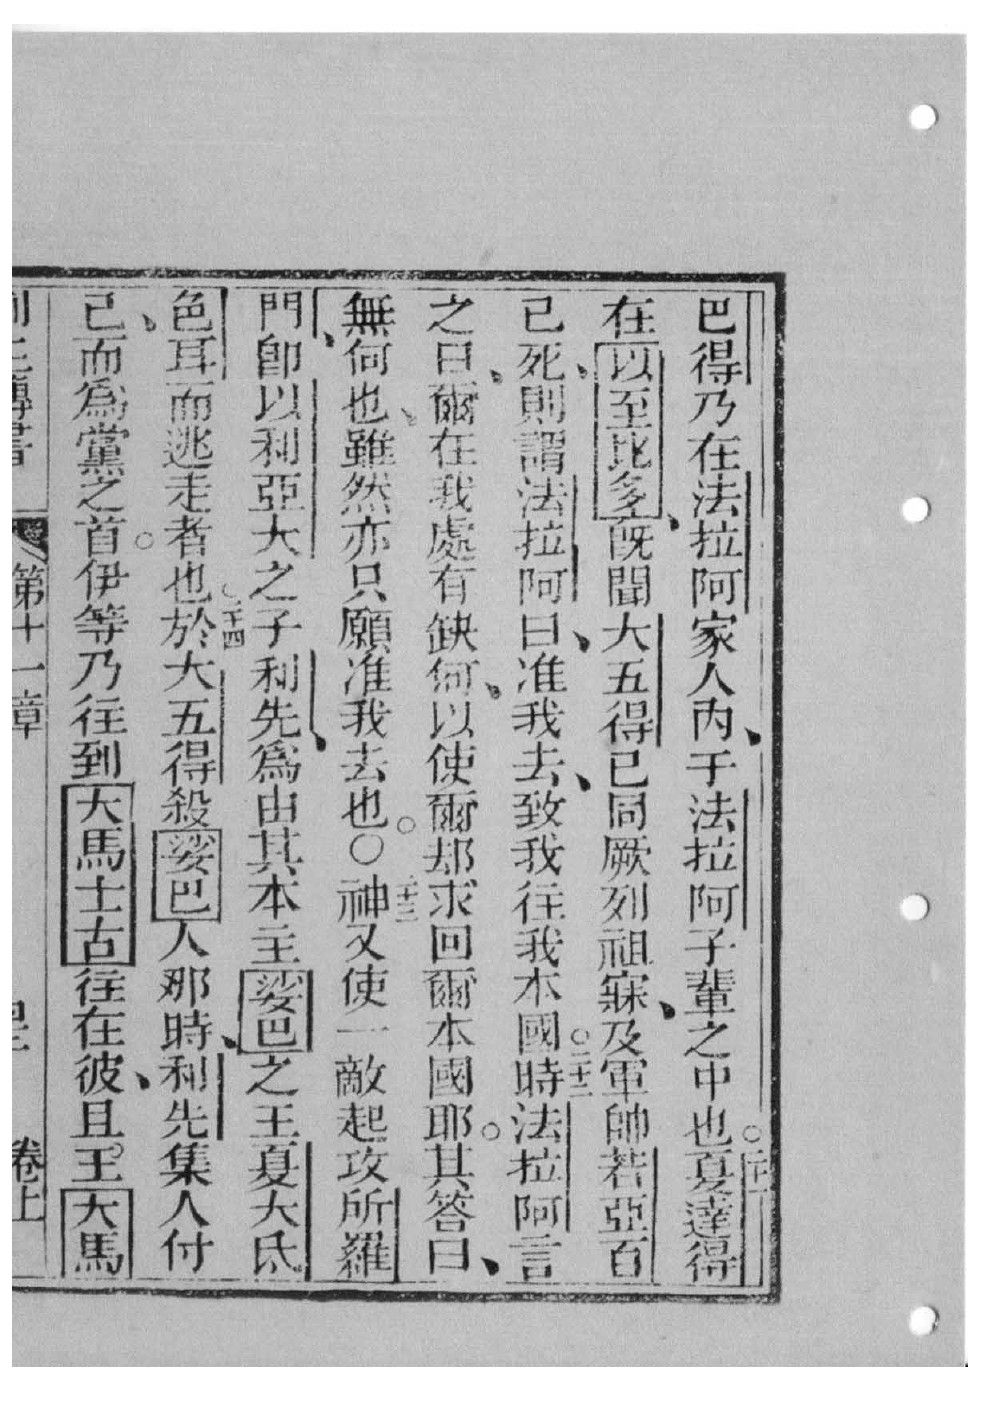 巴得乃在法拉阿家人內于法拉阿子輩之中也。二十一夏達得
在以至比多既聞大五得已同厥列祖寐及軍帥若亞百
已死則謂法拉阿曰准我去致我往我本國時。二十二法拉阿言
之曰爾在我處有缺何以使爾却求回爾本國耶。其答曰
無何也雖然亦只願准我去也。○二十三神又使一敵起攻所羅
門卽以利亞大之子利先爲由其本主娑巴之王夏大氐
色耳而逃走者也。二十四於大五得殺娑巴人那時利先集人付
己而爲黨之首。伊等乃往到大馬士古往在彼且。王大馬
列王傳書 第十一章 卷上